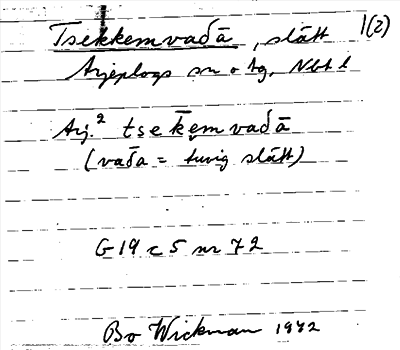 Tsekkemvađā, slått 1(2)
Arjeplogs sn o tg, Nbt l
Arj.² tsekk̄emvađā
(vađa = tuvig slått)
G 19 c 5 nr 72
Bo Wickman 1942